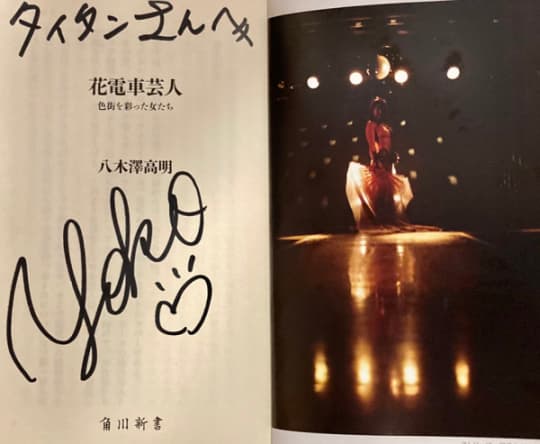 タイタンさんへ
花電車芸人
色街を彩った女たち
八木澤高明
Yoko
角川新書